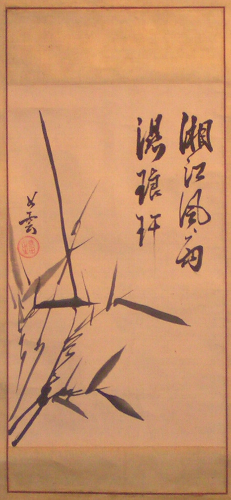 湘江風雨
濕琅玕